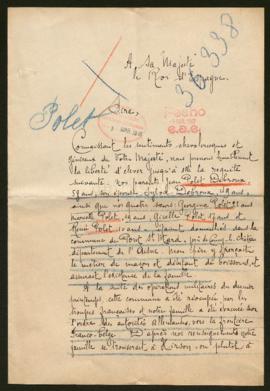 36338
A Sa Majesté
le Roi d'Espagne.
Polet
Sire,
Connaissant les sentiments chevaleresques et
généreux de Votre Majesté, nous prenons humblement
la liberté d'élever jusqu'à elle la requête
suivante. Nos parents Polet Debroux
59 ans, son épouse Debroux, 49 ans,
ainsi que nos quatre sœurs: Georgina Polet 21 ans
Marcelle Polet, 19 ans, Giselle Polet, 17 ans et
René Polet 10 ans, étaient domiciliés dans la
commune de
département de l'Aisne. Mon père y exerçait
le métier de maçon et débitant de boissons, et
assurait l'existence de la famille.
A la suite des opérations militaires du dernier
printemps, cette commune a été réoccupée par les
troupes françaises et notre famille a été évacuée sur
l'ordre des autorités allemandes, vers la frontière
franco-belge. D'après nos renseignements notre
famille se trouverait à Hirson, ou plutôt à